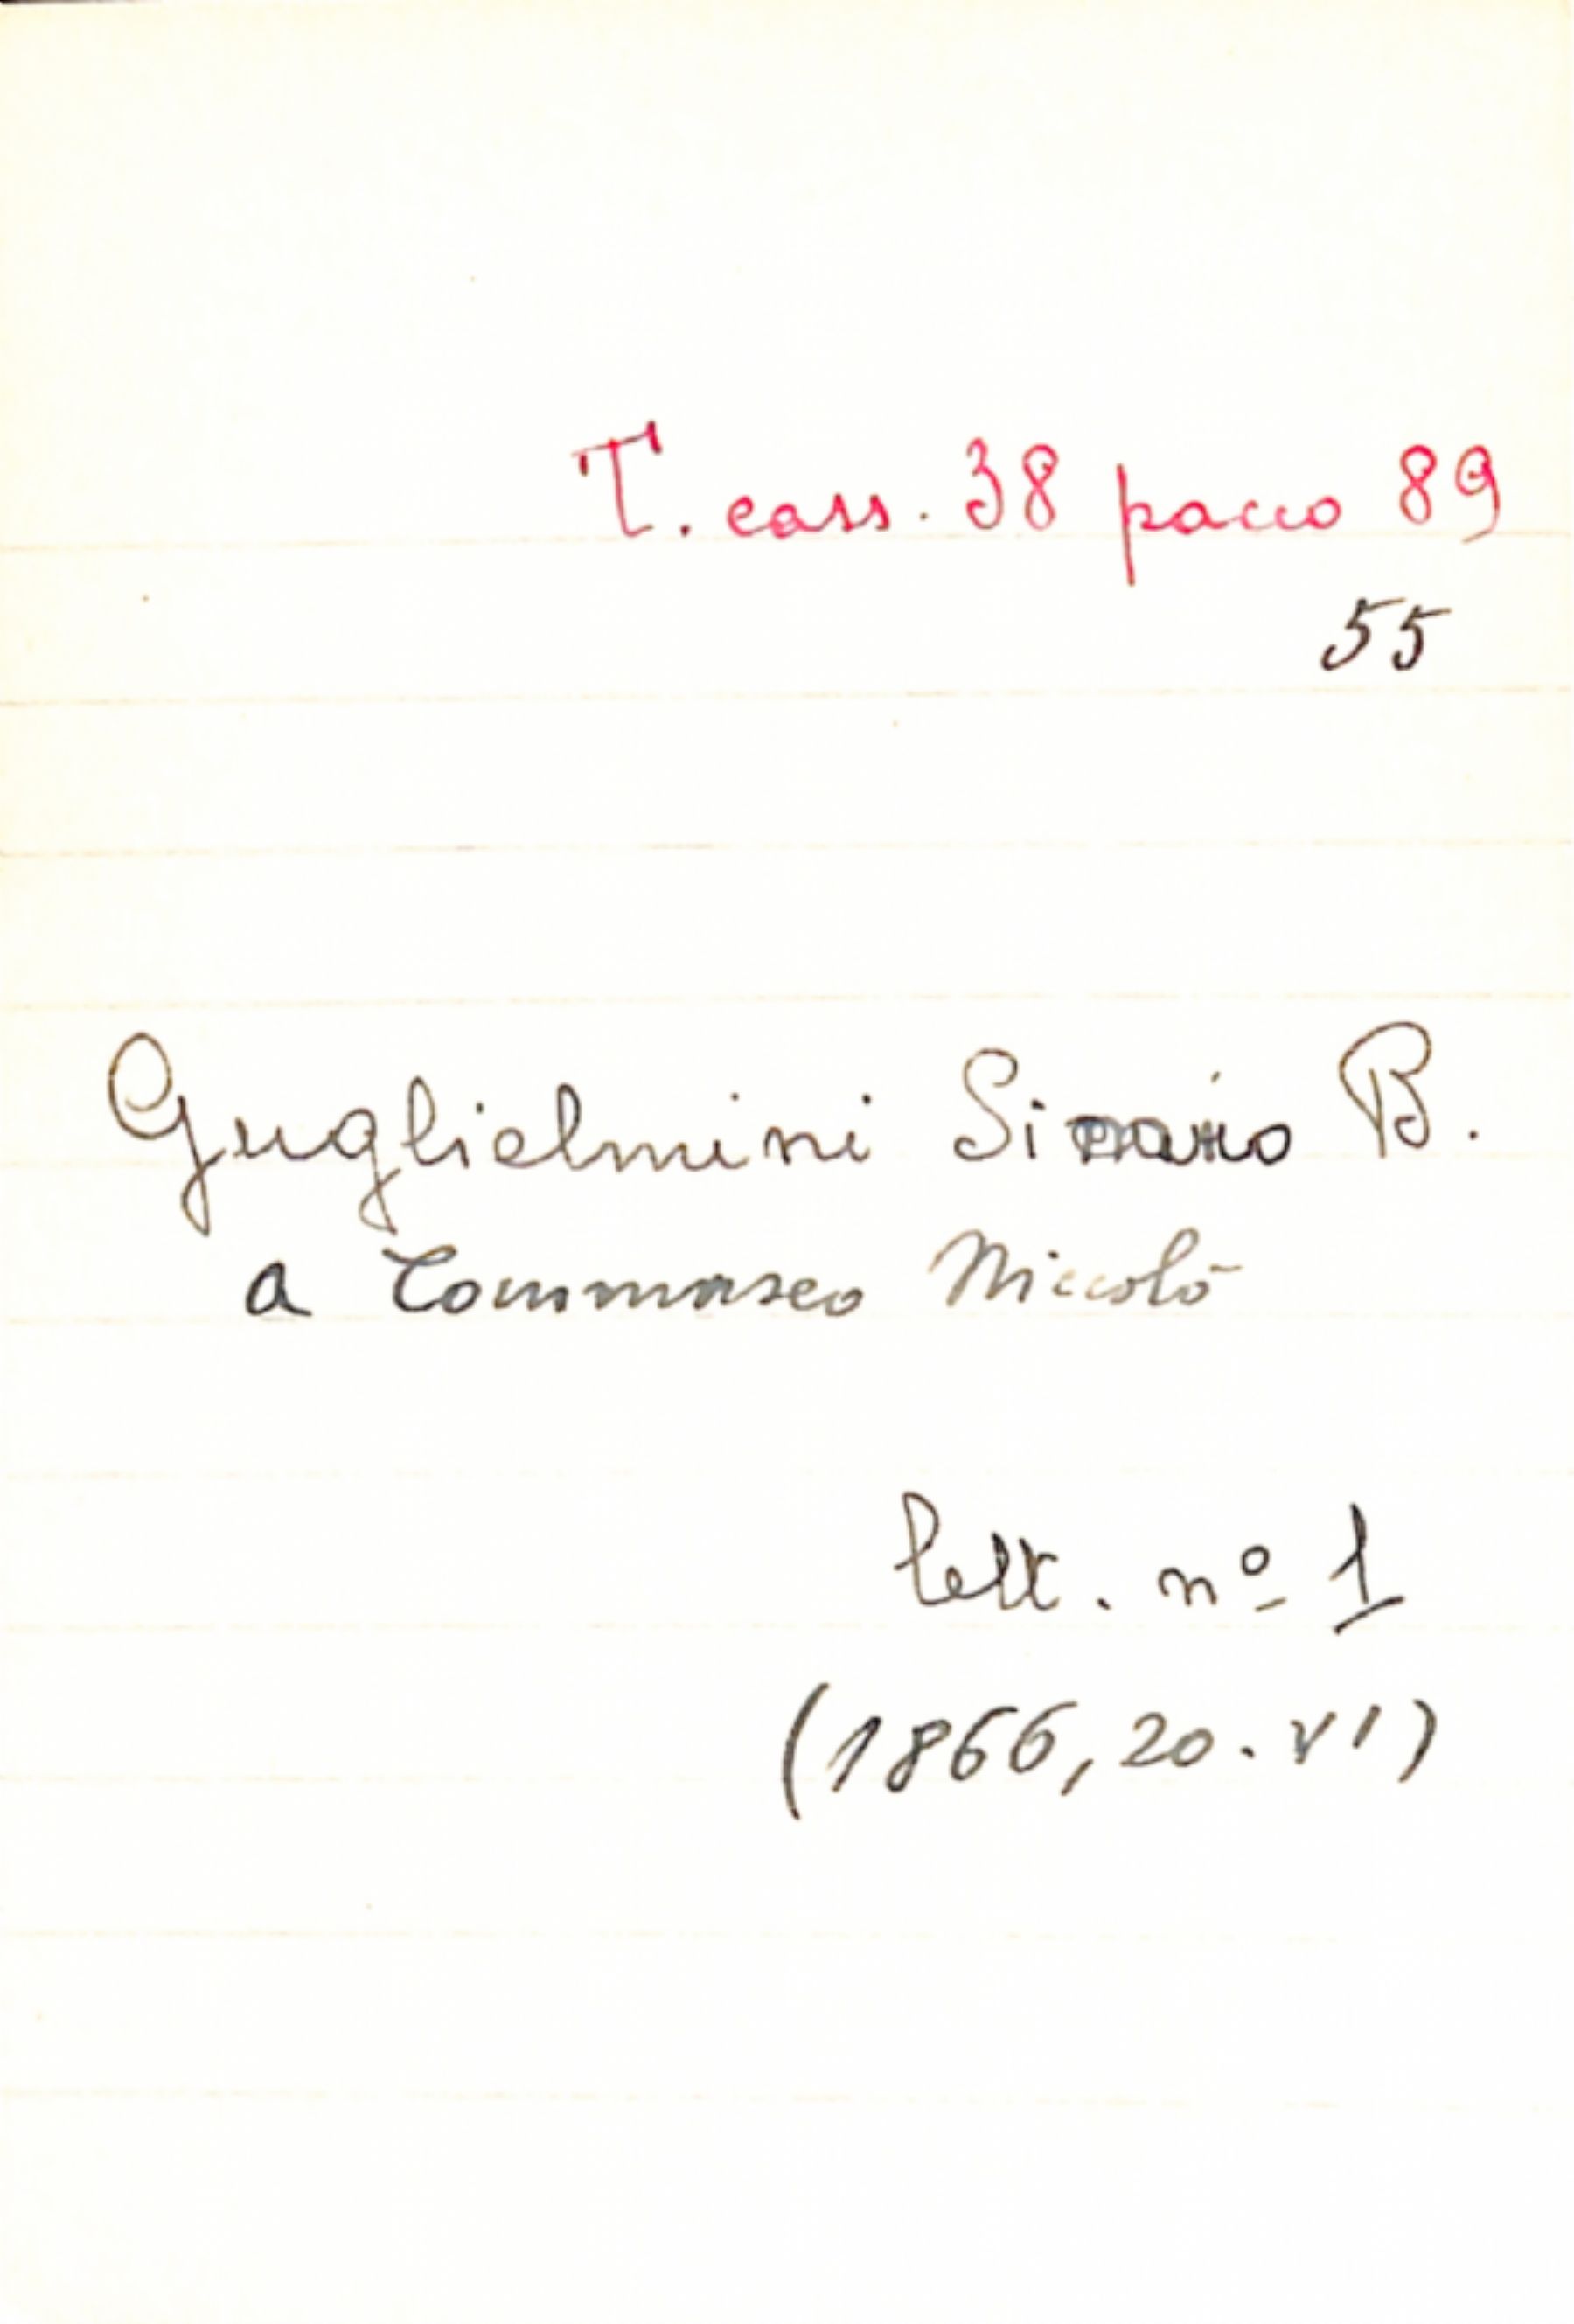 T. cass. 38 pacco 89
55
Guglielmini B.
a Tommaseo Niccolò
lett. nº 1
(1866, 20. VI)